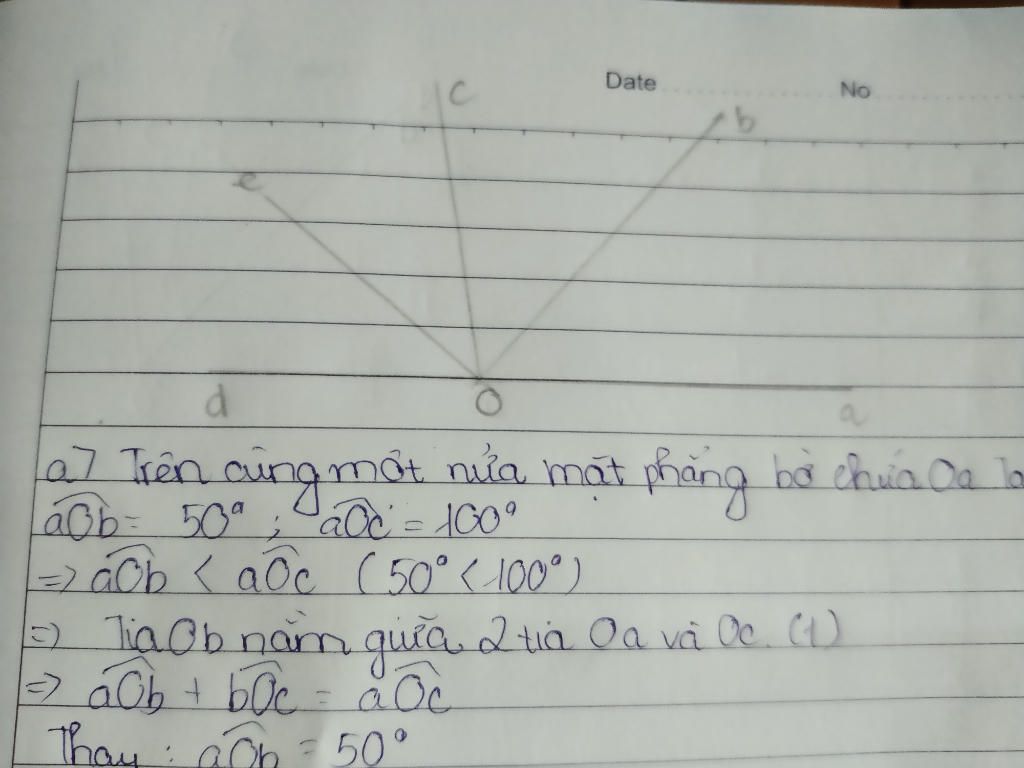 Date No
c
b
e
d O a
a) Trên cùng một nửa mặt phẳng bờ chứa Oa
aOb = 50° ; aOc = 100°
=> aOb < aOc (50° < 100°)
=> Tia Ob nằm giữa 2 tia Oa và Oc. (1)
=> aOb + bOc = aOc
Thay : aOb = 50°